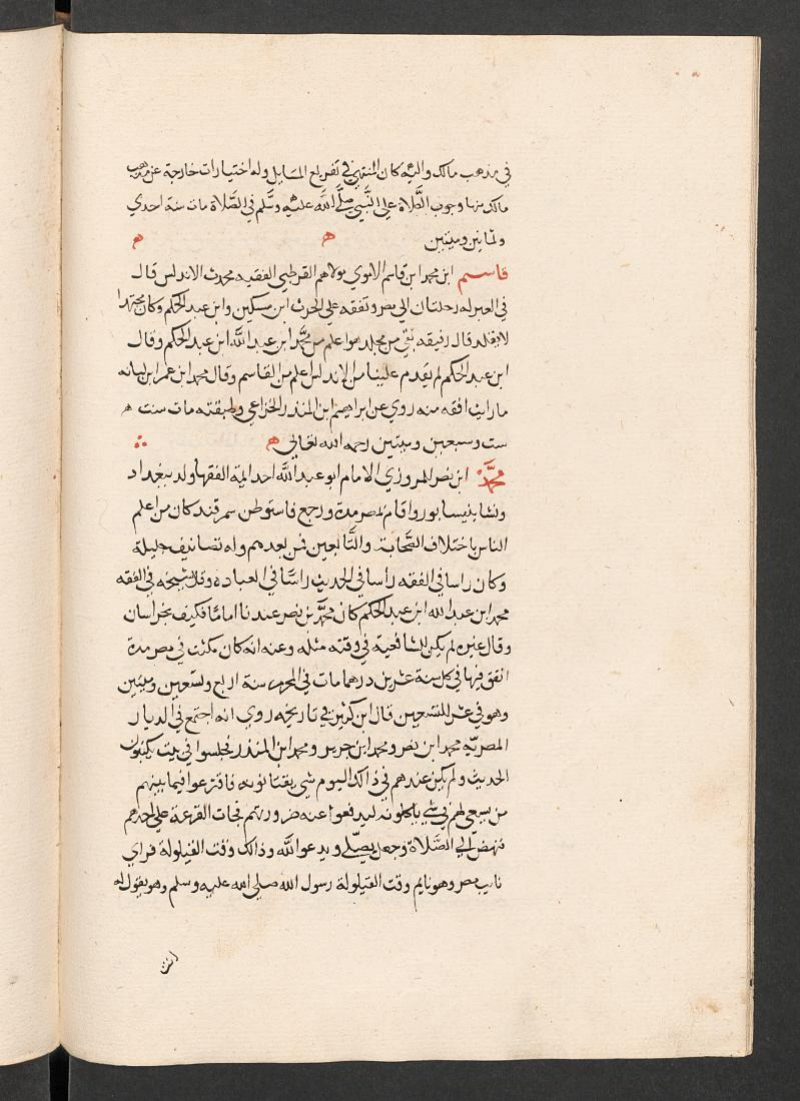 في مذهب مالك واليه كان المنتهي في تفريع المسايل وله اختيارات خارجة عن مذهب
مالك منها وجوب الصَّلاة علي النَّبي صلَّي الله عليه وسَّلم في الصَّلاة مات سنة احدي
وثمانين وميتين ه ه
قاسم ابن محمد ابن قاسم الاموي مولاهم القرطبي الفقيه محدث الاندلس قال
في العبر له رحلتان الي مصر وتفقه علي الحرث ابن مسكين وابن عبد الحكم وكان مجتهدا
لا يقلد قال رفيقه بقي من مخلد هو اعلم من محمَّد ابن عبد اللَّه ابن عبد الحكم وقال
ابن عبد الحكم لم يقدم علينا من الاندلس اعلم من القاسم وقال محمد ابن عمر ابن لبابه
ما رايت افقه منه روي عن ابراهيم ابن المنذر الخزاعي وطبقته مات سنت ه
ست وسبعين وميتين رحمه الله تعالي ه
محمَّد ابن نصر المروزي الامام ابو عبد اللَّه احد ايمة الفقها ولد ببغداد
ونشا بنيسابور واقام بمصر مدة ورجع فاستوطن سمرقند كان من اعلم
الناس باختلاف الصَّحابة والتَّابعين فمن بعدهم وله تصانيف جليلة
وكان راسا في الفقه راسا في الحديث راسًا في العباده وقال شيخه في الفقه
محمد ابن عبد الله ابن عبد الحكم كان محمَّد بن نصر عندنا امامًا فكيف بخراسان
وقال غيره لم يكن للشافعية في وقته مثله وعنه انه كان مكث في مصر مدة
انفق فيها في كل سنة عشرين درهما مات في المحرم سنة اربع وتسعين وميتين
وهو في عشر التسعين قال ابن كثير في تاريخه روي انه اجتمع في الديار
المصريّه محمد ابن نصر ومحمد ابن جرير ومحمد ابن المنذر فجلسوا في بيت يكتبون
الحديث ولم يكن عندهم في ذالك اليوم شي يقتاتونه فاقترعوا فيما بينهم
من يسعي لهم في شي ياكلونه ليدفعوا عنه ضرورتهم فجات القرعة علي احدهم
فنهض الي الصَّلاة وجعل يصلّي ويدعو اللَّه وذالك وقت القيلولة فراي
نايب مصر وهو نايم وقت القيلولة رسول الله صلي الله عليه وسلم وهو يقول له
انت